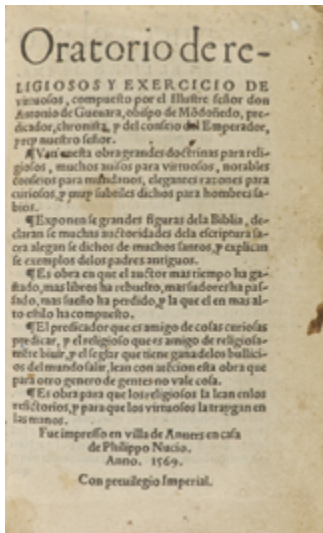 Oratorio de re-
LIGIOSOS Y EXERCICIO DE
virtuosos, compuesto por el Illustre señor don
Antonio de Gueuara, obispo de Mõdoñedo, pre-
dicador, chronista, y del consejo del Emperador,
y rey nuestro señor.
¶Van en esta obra grandes doctrinas para reli-
giosos, muchos auisos para virtuosos, notables
consejos para mundanos, elegantes razones para
curiosos, y muy subtiles dichos para hombres sa-
bios.
¶Exponen se grandes figuras dela Biblia, de-
claran se muchas auctoridades dela escriptura sa-
cra alegan se dichos de muchos santos, y explican
se exemplos delos padres antiguos.
¶Es obra en que el auctor mas tiempo ha ga-
stado, mas libros ha rebuelto, mas sudores ha pas-
sado, mas sueño ha perdido, y la que el en mas al-
to estilo ha compuesto.
¶El predicador que es amigo de cosas curiosas
predicar, y el religioso que es amigo de religiosa-
mẽte biuir, y el seglar que tiene gana delos bullici-
os del mundo salir, lean con atẽcion esta obra que
para otro genero de gentes no vale cosa.
¶Es obra para que los religiosos la lean en los
refictorios, y para que los virtuosos la traygan en
las manos.
Fue impresso en villa de Anuers en casa
de Philippo Nucio.
Anno. 1569.
Con preuilegio Imperial.